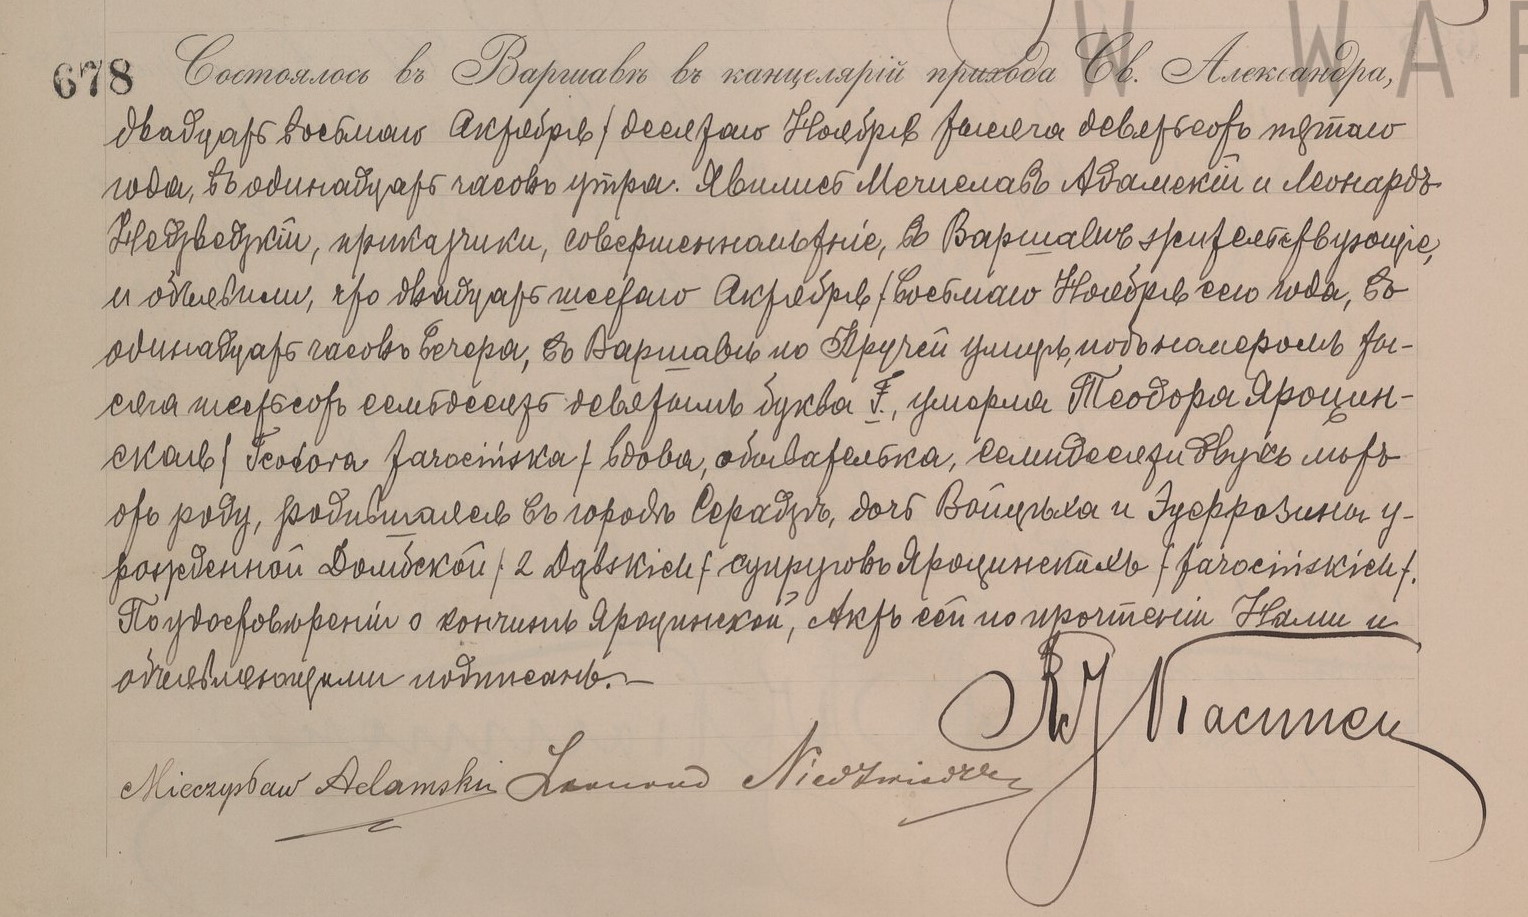 W WAR
678 Состоялось въ Варшавѣ въ канцелярій прихода Св. Александра,
двадцать восьмаго Октября / десятаго Ноября тысяча девятьсотъ пятаго
года, въ одинадцать часовъ утра. Явились Мечиславъ Адамскій и Леонардъ
Недзведзкій, приказчики, совершеннолѣтніе, въ Варшавѣ жительствующіе,
и объявили, что двадцать шестаго Октября / восьмаго Ноября сего года, въ
одинадцать часовъ вечера, въ Варшавѣ по Кручей улицѣ, подъ номеромъ ты-
сяча шестьсотъ семьдесятъ девятымъ буква F, умерла Теодора Яроцин-
ская / Teodora Jarocińska / вдова, обывателька, семидесяти двухъ лѣтъ
отъ роду, родившаяся въ городѣ Серадзѣ, дочь Войцѣха и Эуфрозины у-
рожденной Домбской / z Dąbskich / супруговъ Яроцинскихъ / Jarocińskich /.
По удостовѣреніи о кончинѣ Яроцинской, Актъ сей по прочтеніи Нами и
объявляющими подписанъ.—
Mieczysław Adamski Leonard Niedzwiedzki